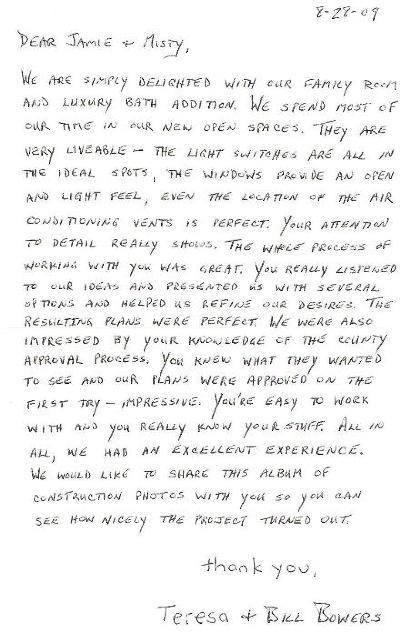 8-28-09
DEAR JAMIE & MISTY,
WE ARE SIMPLY DELIGHTED WITH OUR FAMILY ROOM
AND LUXURY BATH ADDITION. WE SPEND MOST OF
OUR TIME IN OUR NEW OPEN SPACES. THEY ARE
VERY LIVEABLE – THE LIGHT SWITCHES ARE ALL IN
THE IDEAL SPOTS, THE WINDOWS PROVIDE AN OPEN
AND LIGHT FEEL, EVEN THE LOCATION OF THE AIR
CONDITIONING VENTS IS PERFECT. YOUR ATTENTION
TO DETAIL REALLY SHOWS. THE WHOLE PROCESS OF
WORKING WITH YOU WAS GREAT. YOU REALLY LISTENED
TO OUR IDEAS AND PRESENTED US WITH SEVERAL
OPTIONS AND HELPED US REFINE OUR DESIRES. THE
RESULTING PLANS WERE PERFECT. WE WERE ALSO
IMPRESSED BY YOUR KNOWLEDGE OF THE COUNTY
APPROVAL PROCESS. YOU KNEW WHAT THEY WANTED
TO SEE AND OUR PLANS WERE APPROVED ON THE
FIRST TRY – IMPRESSIVE. YOU'RE EASY TO WORK
WITH AND YOU REALLY KNOW YOUR STUFF. ALL IN
ALL, WE HAD AN EXCELLENT EXPERIENCE.
WE WOULD LIKE TO SHARE THIS ALBUM OF
CONSTRUCTION PHOTOS WITH YOU SO YOU CAN
SEE HOW NICELY THE PROJECT TURNED OUT.
thank you,
Teresa & BILL BOWERS